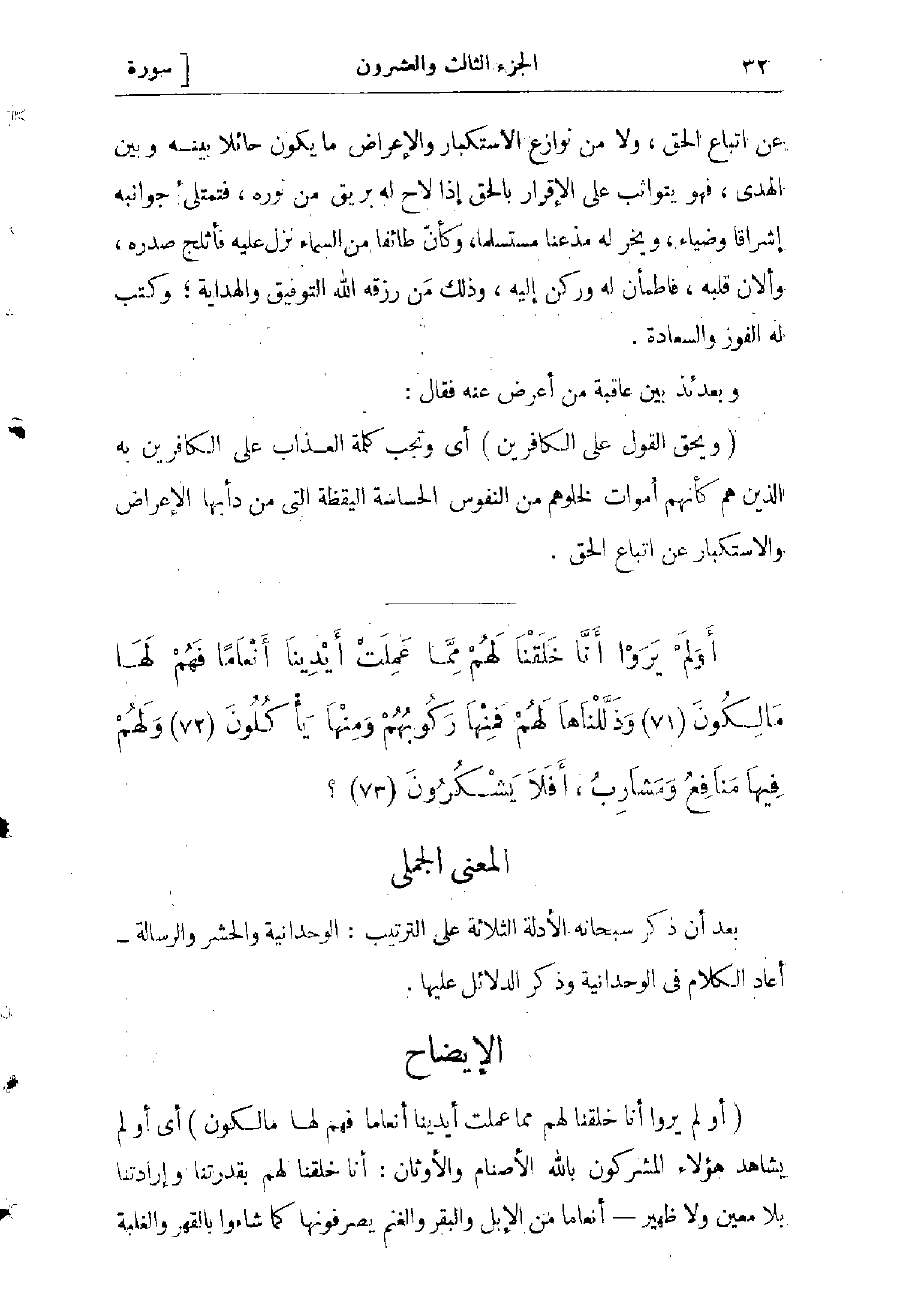 ٣٢ الجزء الثالث والعشرون [ سورة
عن اتباع الحق ، ولا من نوازع الاستكبار والإعراض ما يكون حائلا بينه وبين
الهدى ، فهو يتواثب على الإقرار بالحق إذا لاح له بريق من نوره ، فتمتلئ جوانبه
إشراقا وضياء ، ويخر له مذعنا مستسلما، وكأنّ طائفا من السماء نزل عليه فأثلج صدره ،
وألان قلبه ، فاطمأن له وركن إليه ، وذلك مَن رزقه الله التوفيق والهداية ؛ وكتب
له الفوز والسعادة .
وبعدئذ بين عاقبة من أعرض عنه فقال :
( ويحق القول على الكافرين ) أى وتجب كلمة العذاب على الكافرين به
الذين هم كأنهم أموات لخلوهم من النفوس الحساسة اليقظة التى من دأبها الإعراض
والاستكبار عن اتباع الحق .
أَوَلَمْ يَرَوْا أَنَّا خَلَقْنَا لَهُمْ مِمَّا عَمِلَتْ أَيْدِينَا أَنْعَامًا فَهُمْ لَهَا
مَالِكُونَ (٧١) وَذَلَّلْنَاهَا لَهُمْ فَمِنْهَا رَكُوبُهُمْ وَمِنْهَا يَأْكُلُونَ (٧٢) وَلَهُمْ
فِيهَا مَنَافِعُ وَمَشَارِبُ ، أَفَلَا يَشْكُرُونَ (٧٣) ؟
المعنى الجملى
بعد أن ذكر سبحانه الأدلة الثلاثة على الترتيب : الوحدانية والحشر والرسالة –
أعاد الكلام فى الوحدانية وذكر الدلائل عليها .
الإيضاح
( أو لم يروا أنا خلقنا لهم مما عملت أيدينا أنعاما فهم لها مالكون ) أى أو لم
يشاهد هؤلاء المشركون بالله الأصنام والأوثان : أنا خلقنا لهم بقدرتنا وإرادتنا
بلا معين ولا ظهير – أنعاما من الإبل والبقر والغنم يصرفونها كما شاءوا بالقهر والغلبة